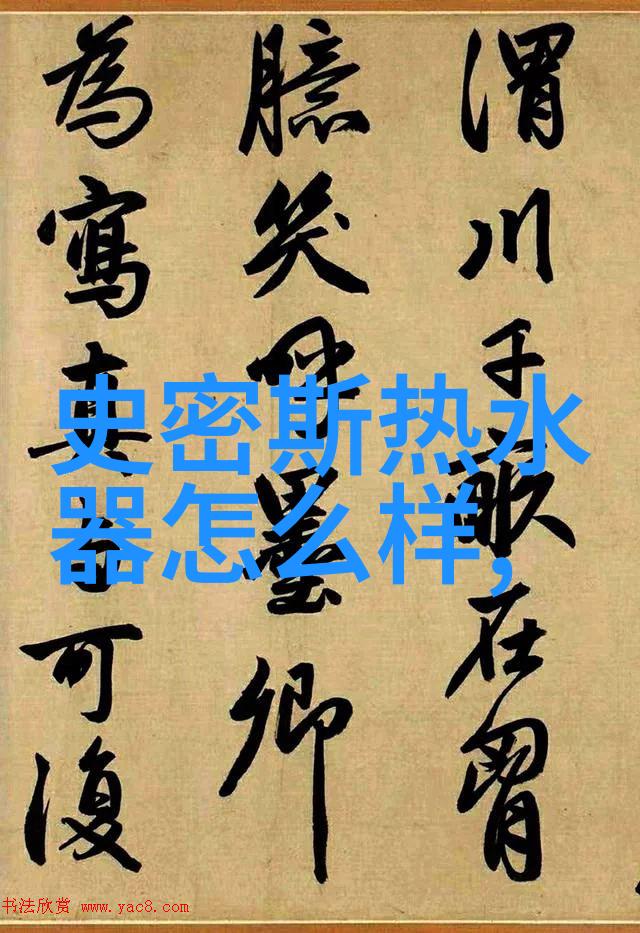 渭川千畝在胷
臆笑呼墨卿
為寫真可復
史密斯热水
器怎么样,
书法欣赏 www.yac8.com